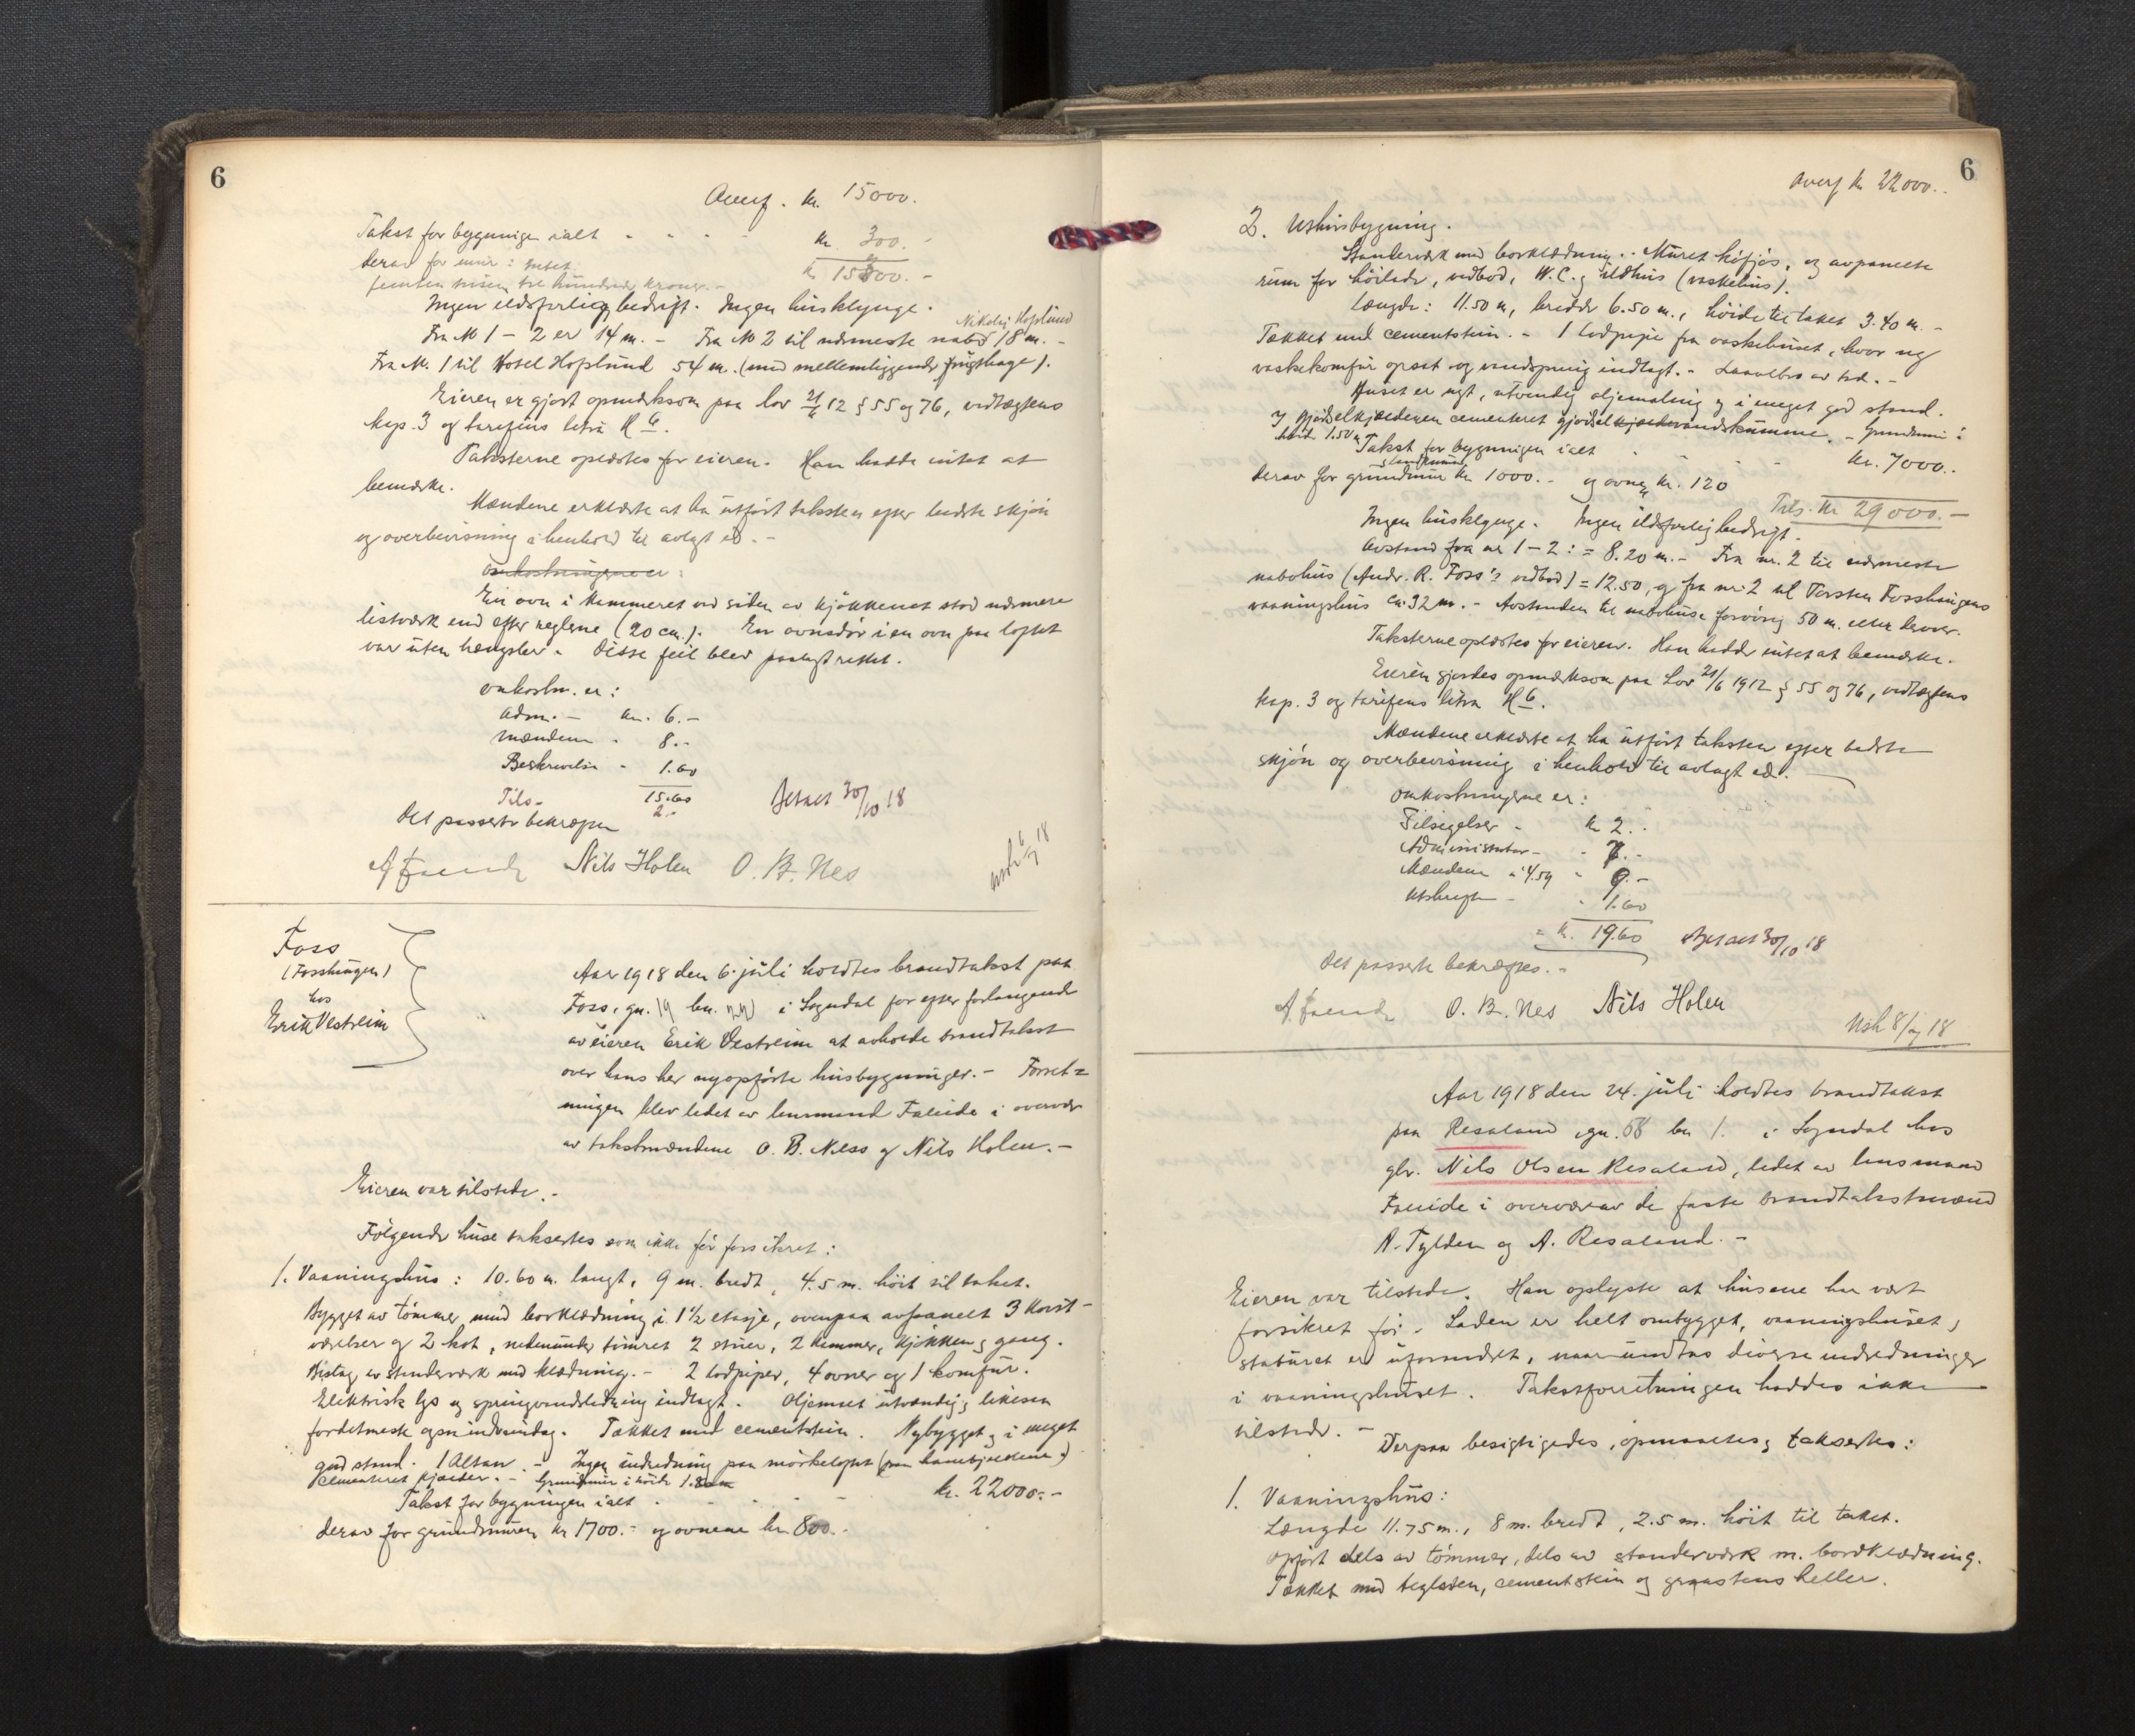 6
Overf. kr. 15000.
Takst for bygningen ialt - - - - kr. 300.-
derav for mur: intet.
kr. 15300.-
femten tusen tre hundrede kroner.-
Ingen ildsfarlig bedrift. Ingen husklynge.
Nikolai Hofslund
Fra № 1 - 2 er 14 m. - Fra № 2 til nærmeste nabo 18 m. -
Fra № 1 til Hotel Hofslund 54 m. (med mellemliggende frugthage).
Eieren er gjort opmerksom paa lov 21/6 12 § 55 og 76, vedtægtens
kap. 3 og tarifens litra H 6.
Taksterne oplæstes for eieren. Han hadde intet at
bemerke.
Mændene erklærte at ha utført taksten efter bedste skjøn
og overbevisning i henhold til avlagt ed. -
Omkostningerne er:
Ein ovn i kammeret ved siden av kjøkkenet stod nærmere
listverk end efter reglerne (20 cm.). En ovnsdør i en ovn paa loftet
var uten hængsler. Disse feil blev paalagt rettet.
Omkostn. er:
Adm. - kr. 6.-
Mændene - 8.-
Beskrivelse - 1.60
Tils- 15.60
2.-
Betalt 30/10 18
Det passerte bekræftes
A Faleide Nils Holen O. B. Nes
utsk 6/7 18
Foss
(Fosshaugen)
hos
Erik Vestreim
Aar 1918 den 6. juli holdtes brandtakst paa
Foss, gn. 19 bn. 22 i Sogndal for efter forlangende
av eieren Erik Vestreim at avholde brandtakst
over hans her nyopførte husbygninger. - Forret=
ningen blev ledet av lensmand Faleide i overvær
av takstmændene O. B. Ness og Nils Holen. -
Eieren var tilstede. -
Følgende huse taksertes som ikke før forsikret:
1. Vaaningshus: 10.60 m. langt, 9 m. bredt, 4.5 m. høit til taket.
Bygget av tømmer med bordklædning i 1 1/2 etasje, ovenpaa avpanelt 3 kvist-
værelser og 2 kot, nedenunder tømret 2 stuer, 2 kammer, kjøkken og gang.
Bislag av stenderverk med klædning. - 2 lodpiper, 4 ovner og 1 komfur.
Elektrisk lys og springvandsledning indlagt. Oljemalt utvendig, likesaa
fordetmeste ogsaa indvendig. Tækket med cementstein. Nybygget og i meget
god stand. 1 Altan. - Ingen indredning paa mørkeloftet (paa hanebjelkene.)
Cementeret kjælder. - Grundmur i høide 1.80 m
Takst for bygningen ialt - - - kr. 22000.-
derav for grundmuren kr 1700.- og ovnene kr. 800.-
6
Overf kr 22000..
2. Uthusbygning.
Stenderverk med bordklædning. Muret kofjøs, og avpanelte
rum for høilade, vedbod, W.C. og ildhus (vaskehus).
Længde: 11.50 m, bredde 6.50 m., høide til taket 3.40 m. -
Tækket med cementstein. - 1 lodpipe fra vaskehuset, hvor ny
vaskekomfur opsat og vandspring indlagt. - Laavebro av træ. -
Huset er nyt, utvendig oljemaling og i meget god stand.
I gjødselkjælderen cementeret gjødselvandskumme. - Grundmur i
høide 1.50 m
Takst for bygningen ialt - - - kr. 7000..
derav for grundmur kr 1000.- og ovnen kr. 120
Tils. kr 29000.-
Ingen husklynge. Ingen ildsfarlig bedrift.
Avstand fra nr 1 - 2: = 8.20 m. - Fra nr. 2 til nærmeste
nabohus (Andr. R. Foss's vedbod) = 12.50, og fra nr. 2 til Torsten Fosshaugens
vaaningshus ca. 32 m. - Avstanden til nabohuse forøvrig 50 m. eller derover.
Taksterne oplæstes for eieren. Han hadde intet at bemerke.
Eieren gjordes opmerksom paa Lov 21/6 1912 § 55 og 76, vedtægtens
kap. 3 og tarifens litra H 6.
Mændene erklærte at ha utført taksten efter bedste
skjøn og overbevisning i henhold til avlagt ed.
Omkostningerne er:
Tilsigelser - kr 2..
Administrator - - 7.-
Mændene a 4.50 - 9.-
Utskrift - - 1.60
= kr. 19.60 Betalt 30/10 18
Det passerte bekræftes. -
A. Faleide O. B. Nes Nils Holen
Utsk 8/7 18
Aar 1918 den 24. juli holdtes brandtakst
paa Resaland, gn. 68 bn 1. i Sogndal hos
gbr. Nils Olsen Resaland, ledet av lensmand
Faleide i overvær av de faste brandtakstmænd
A. Tylden og A. Resaland. -
Eieren var tilstede. Han oplyste at husene har vært
forsikret før. Laden er helt ombygget, vaaningshuset,
staburet er uforandret, naar undtas diverse indredninger
i vaaningshuset. Takstforretningen haddes ikke
tilstede. -
Derpaa besigtigedes, opmaaltes og taksertes:
1. Vaaningshus:
Længde 11.75 m., 8 m. bredt, 2.5 m. høit til taket.
Opført dels av tømmer, dels av stenderverk m. bordklædning.
Tækket med teglsten, cementstein og graastens heller.